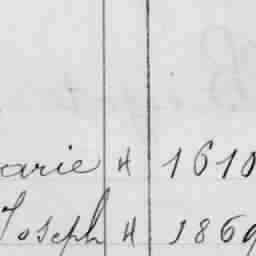 arie " 1610
Joseph " 1869